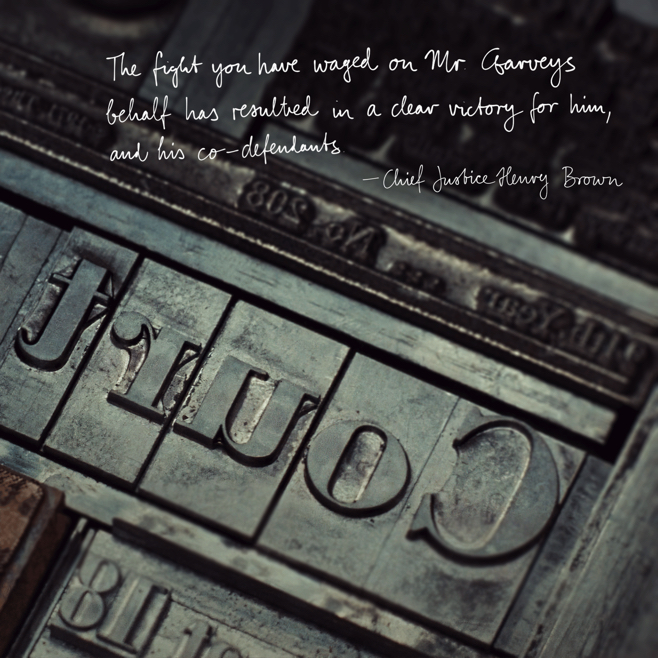 The fight you have waged on Mr. Garveys
behalf has resulted in a clear victory for him,
and his co-defendants
—Chief Justice Henry Brown
No. 208
11th Year
Court